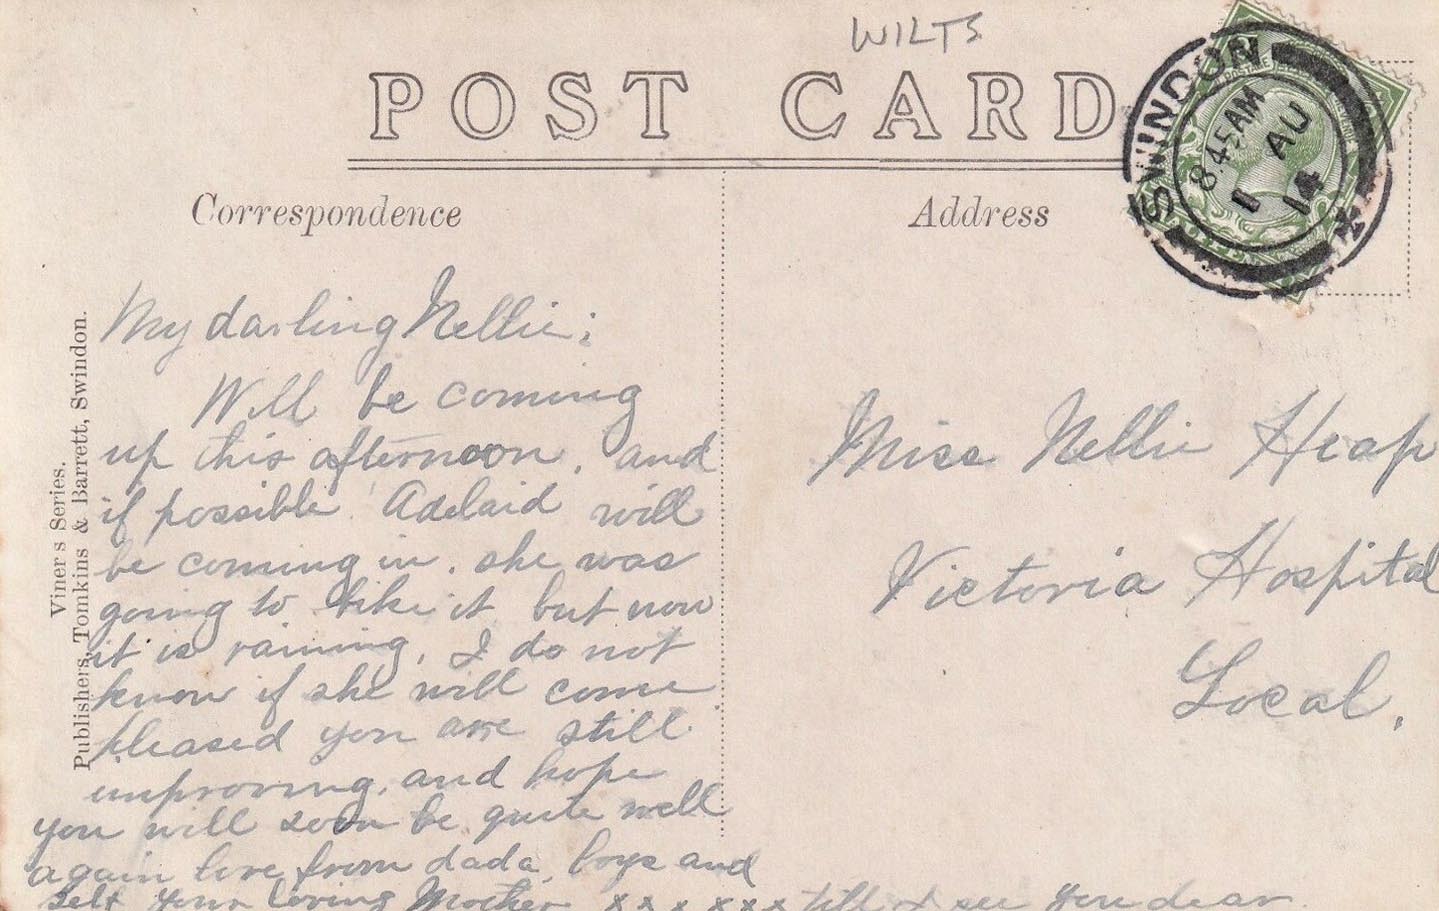 WILTS
POST CARD
SWINDON
8.45 AM
1 AU
14
Correspondence
Address
My darling Nellie;
Will be coming
up this afternoon, and
if possible Adelaid will
be coming in. she was
going to bike it but now
it is raining, I do not
know if she will come
pleased you are still
improving, and hope
you will soon be quite well
again love from dada, boys and
self your loving Mother x x x x x x till I see you dear
Miss Nellie Heap
Victoria Hospital
Local,
Viners Series.
Publishers, Tomkins & Barrett, Swindon.